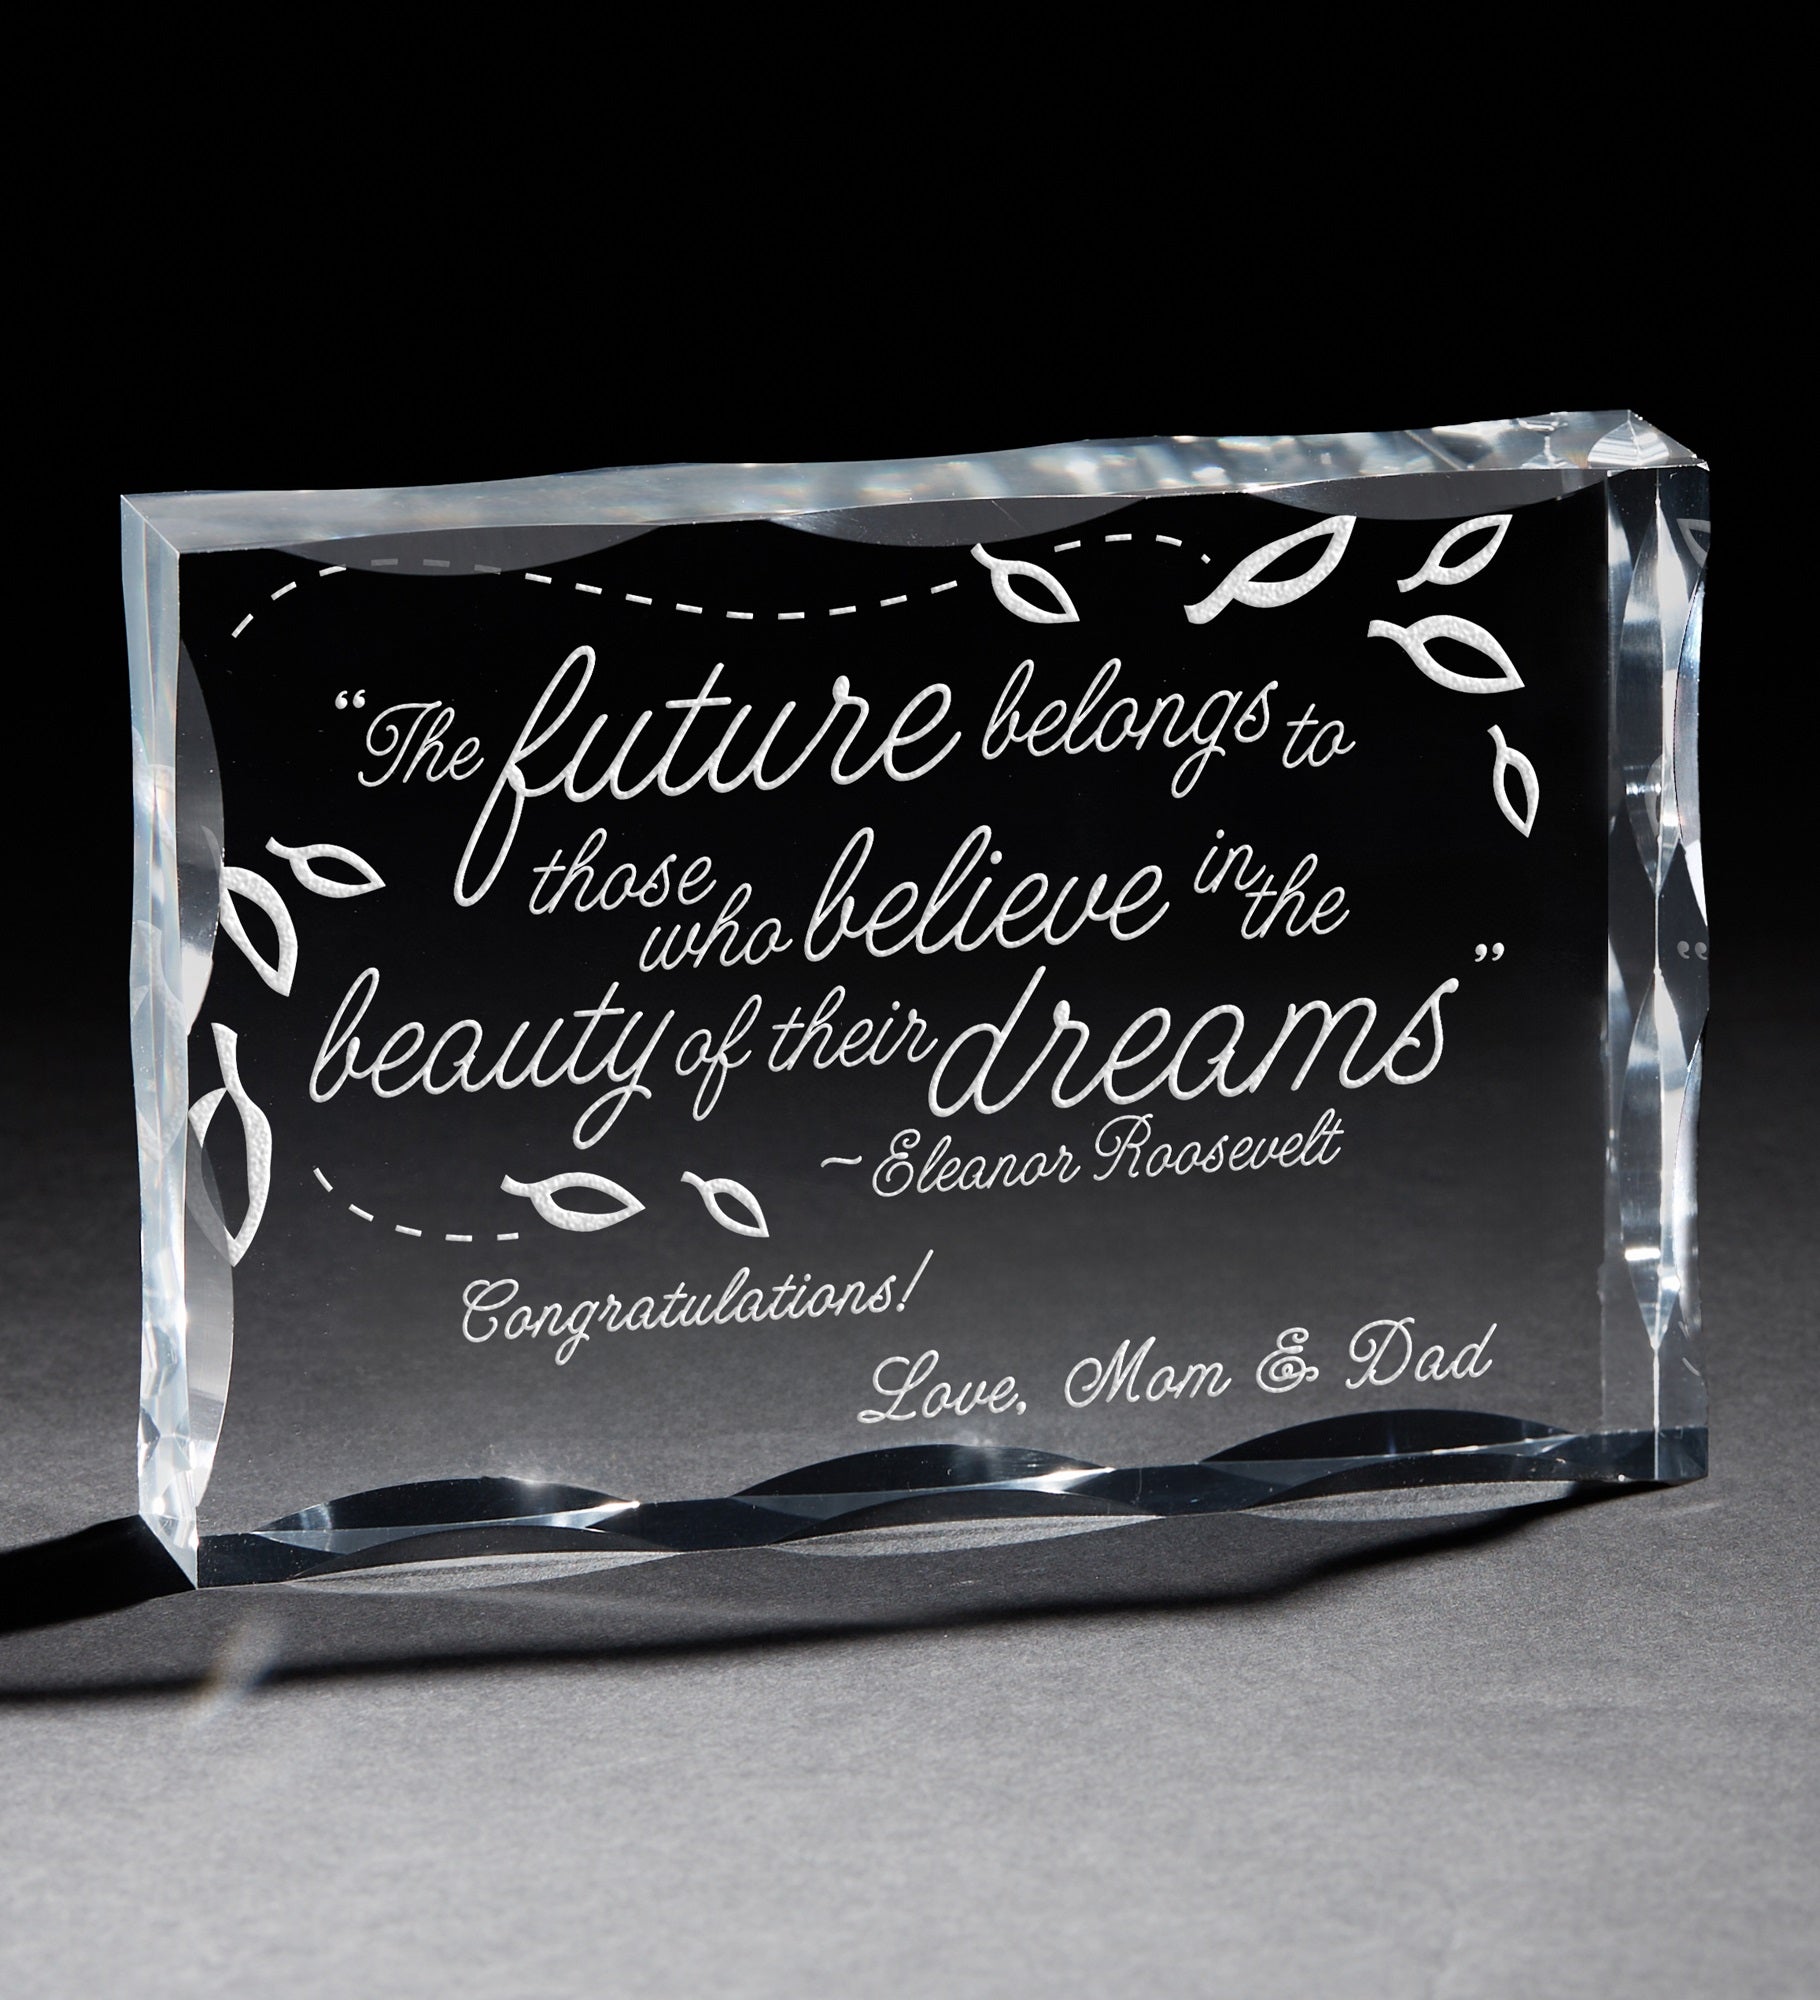 “The future belongs to
those who believe in the
beauty of their dreams”
~Eleanor Roosevelt
Congratulations!
Love, Mom & Dad